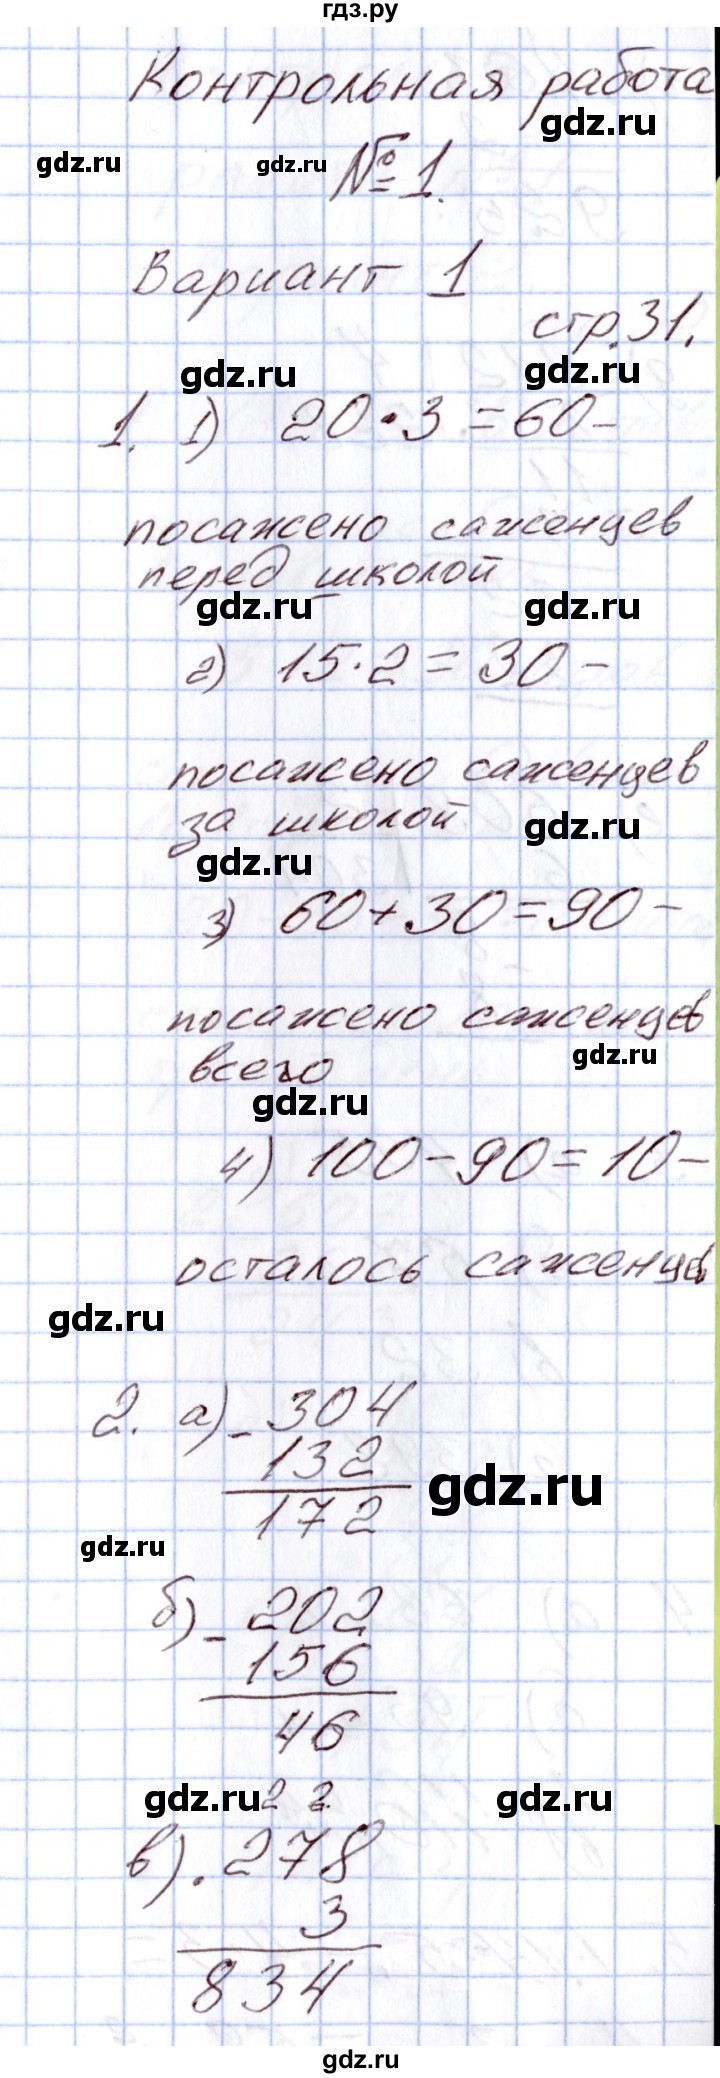 гдз.ру
Контрольная работа
gdz.ru
gdz.ru gdz.ru № 1.
Вариант 1
стр.31.
gdz.ru gdz.ru
1. 1) 20·3=60-
посажено саженцев
перед школой
gdz.ru gdz.ru
2) 15·2=30-
посажено саженцев
за школой gdz.ru
gdz.ru
3) 60+30=90-
посажено саженцев
всего gdz.ru
gdz.ru
4) 100-90=10-
осталось саженцев
gdz.ru
2. а) - 304
132
gdz.ru
172
gdz.ru
б) - 202
156
46
gdz.ru 2 2 gdz.ru
в) · 278
3
834
gdz.ru